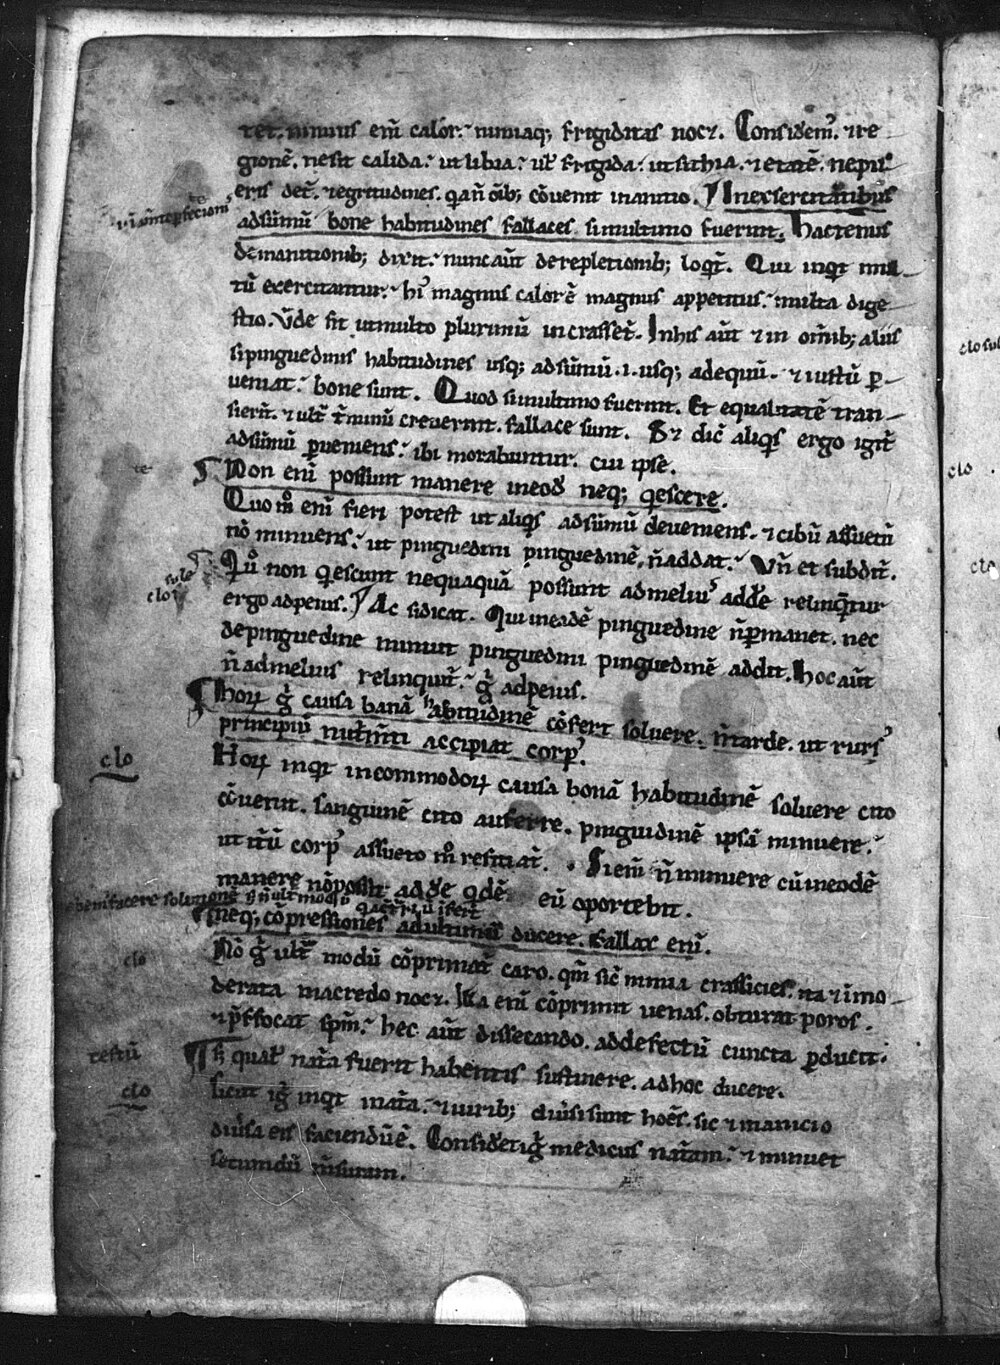 tet. nimius eni̅ calor. nimiaq; frigiditas noc&. Considem̅. & re
gione̅. ne sit calida. ut libia. ul̅ frigida. ut sithia. & etate̅. ne pu
eris det̅. & egritudines. q̅an̅ oi̅b; co̅uenit inanitio. In exsercitantibus
ad su̅mu̅ bone habitudines fallaces si in ultimo fuerint. Hactenus
de inanitionib; dixit. nunc aut̅ de repletionib; loq̅t̅. Qui inq̅t mul
tu̅ exercitantur. his magnus calor e̅ magnus appetitus. multa dige
stio. Vn̅de fit ut multo plurimu̅ incrasset̅. In his aut̅ & in om̅ib; aliis
si pinguedinis habitudines usq; ad su̅mu̅ .i. usq; ad equu̅. & iustu̅ p̲
ueniat. bone sunt. Quod si in ultimo fuerint. Et equalitate̅ tran
sieri̅t. & ult̅ t̅minu̅ creuerint. fallace sunt. S& dic̅ aliq̅s ergo igit̅
ad su̅mu̅ p̲ueniens. ibi morabuntur. cui ipse.
¶ Non eni̅ possunt manere in eod̅ neq; q̅escere.
Quom̊ eni̅ fieri potest ut aliq̅s ad su̅mu̅ deueniens. & cibu̅ assuetu̅
no̅ minuens. ut pinguedini pinguedine̅ n̅ addat. Vn̅ et subdit̅.
Qu̅ non q̅escunt nequaqua̅ possunt ad melius adde̅ relinq̅tur
ergo ad peius. Ac si dicat. Qui in eade̅ pinguedine n̅ p̲manet. nec
de pinguedine minuit pinguedini pinguedine̅ addit. Hoc aut̅
n̅ ad melius relinquit̅. g̅ ad peius.
¶ Horꝝ g̅ causa bona̅ habitudine̅ co̅fert soluere. n̅ tarde. ut rurs̅
principiu̅ nut̅m̅ti accipiat corp̅.
clo
Horꝝ inq̅t incommodorꝝ causa bona̅ habitudine̅ soluere cito
co̅uenit. sanguine̅ cito auferre. pinguidine̅ ipsa̅ minuere.
ut it̅u̅ corp̅ assueto m̊ reficiat̅. Si eni̅ n̅ minuere cu̅ in eode̅
manere no̅ possit adde̅ q̅de̅ eu̅ oportebit.
neq; co̅pressiones ad ultimu̅ ducere. Fallax eni̅.
clo
No̅ g̅ ult̅ modu̅ co̅primat̅ caro. qm̅ sic̅ nimia crassicies. ita & i̅mo
derata macredo noc&. Illa eni̅ co̅primit uenas. obturat poros.
& p̅focat spm̅. hec aut̅ dissecando. ad defectu̅ cuncta p̲ducit.
testu̅
¶ S̅ qual̅ nat̅a fuerit habentis sustinere. ad hoc ducere.
clo
Sicut ig̅ inq̅t in nat̅a. & uirib; diuisi sunt hoe̅s. sic & inanicio
diu̅sa eis faciendu̅ e̅. Consideret ig̅ medicus nat̅am. & minuet
secundu̅ m̅suram.